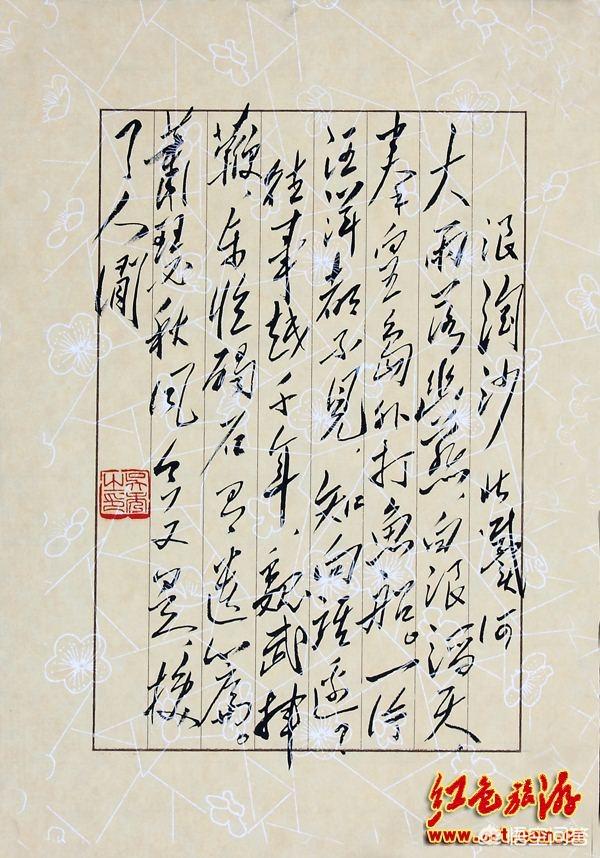 浪淘沙 北戴河
大雨落幽燕，白浪滔天，
秦皇岛外打鱼船。一片
汪洋都不见，知向谁边？
往事越千年，魏武挥
鞭，东临碣石有遗篇。
萧瑟秋风今又是，换
了人间
红色旅游
悟空问答